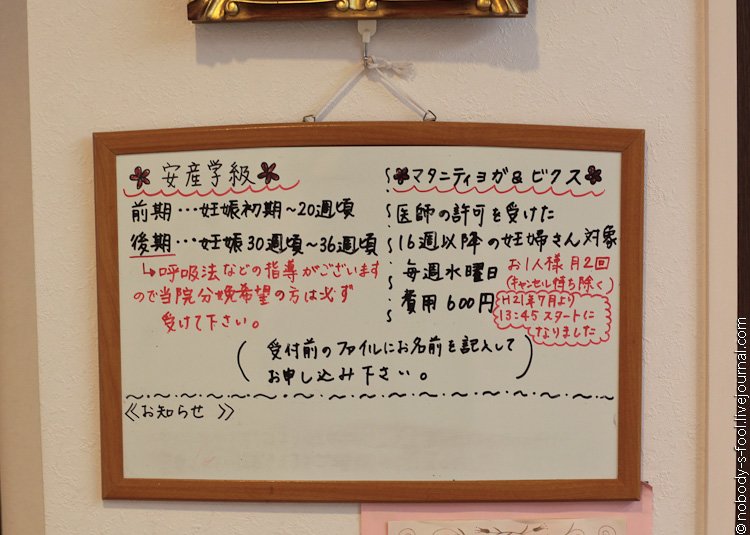 安産学級
前期…妊娠初期～20週頃
後期…妊娠30週頃～36週頃
↳呼吸法などの指導がございます
ので当院分娩希望の方は必ず
受けて下さい。
マタニティヨガ&ビクス
医師の許可を受けた
16週以降の妊婦さん対象
毎週水曜日
費用600円
お1人様月2回
(キャンセル待ち除く)
H21年7月より
13:45スタートに
なりました
(受付前のファイルにお名前を記入して
お申し込み下さい。)
《お知らせ》
© nobody-s-fool.livejournal.com